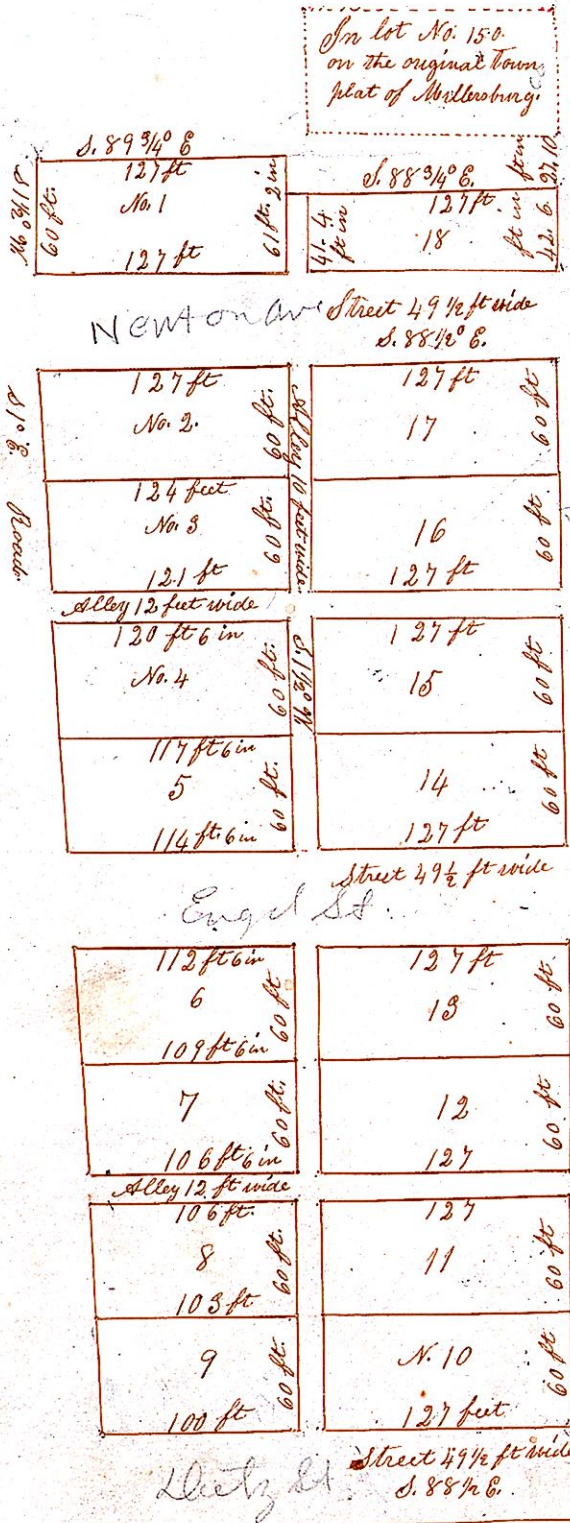 In lot No. 150.
on the original Town
plat of Millersburg.
S. 89 3/4° E
127 ft
No. 1
127 ft
S 1 1/2° W
60 ft.
61 ft. 2 in
S. 88 3/4° E.
127 ft
18
41. 4
ft in
ft in
42. 6.
ft in
27. 10
Newton Ave
Street 49 1/2 ft wide
S. 88 1/2° E.
S 1° E. Road.
127 ft
No. 2.
60 ft.
124 feet
No. 3
60 ft.
121 ft
Alley 10 feet wide
127 ft
17
60 ft
16
60 ft.
127 ft
Alley 12 feet wide
120 ft 6 in
No. 4
60 ft.
117 ft 6 in
5
60 ft.
114 ft. 6 in
S. 1 1/2° W
127 ft
15
60 ft
14
60 ft
127 ft
Street 49 1/2 ft wide
Engel St.
112 ft 6 in
6
60 ft
109 ft 6 in
7
60 ft.
106 ft 6 in
127 ft
13
60 ft
12
60 ft.
127
Alley 12 ft wide
106 ft.
8
60 ft.
103 ft
9
60 ft.
100 ft
127
11
60 ft.
N. 10
60 ft
127 feet
Street 49 1/2 ft wide
S. 88 1/2 E.
St.